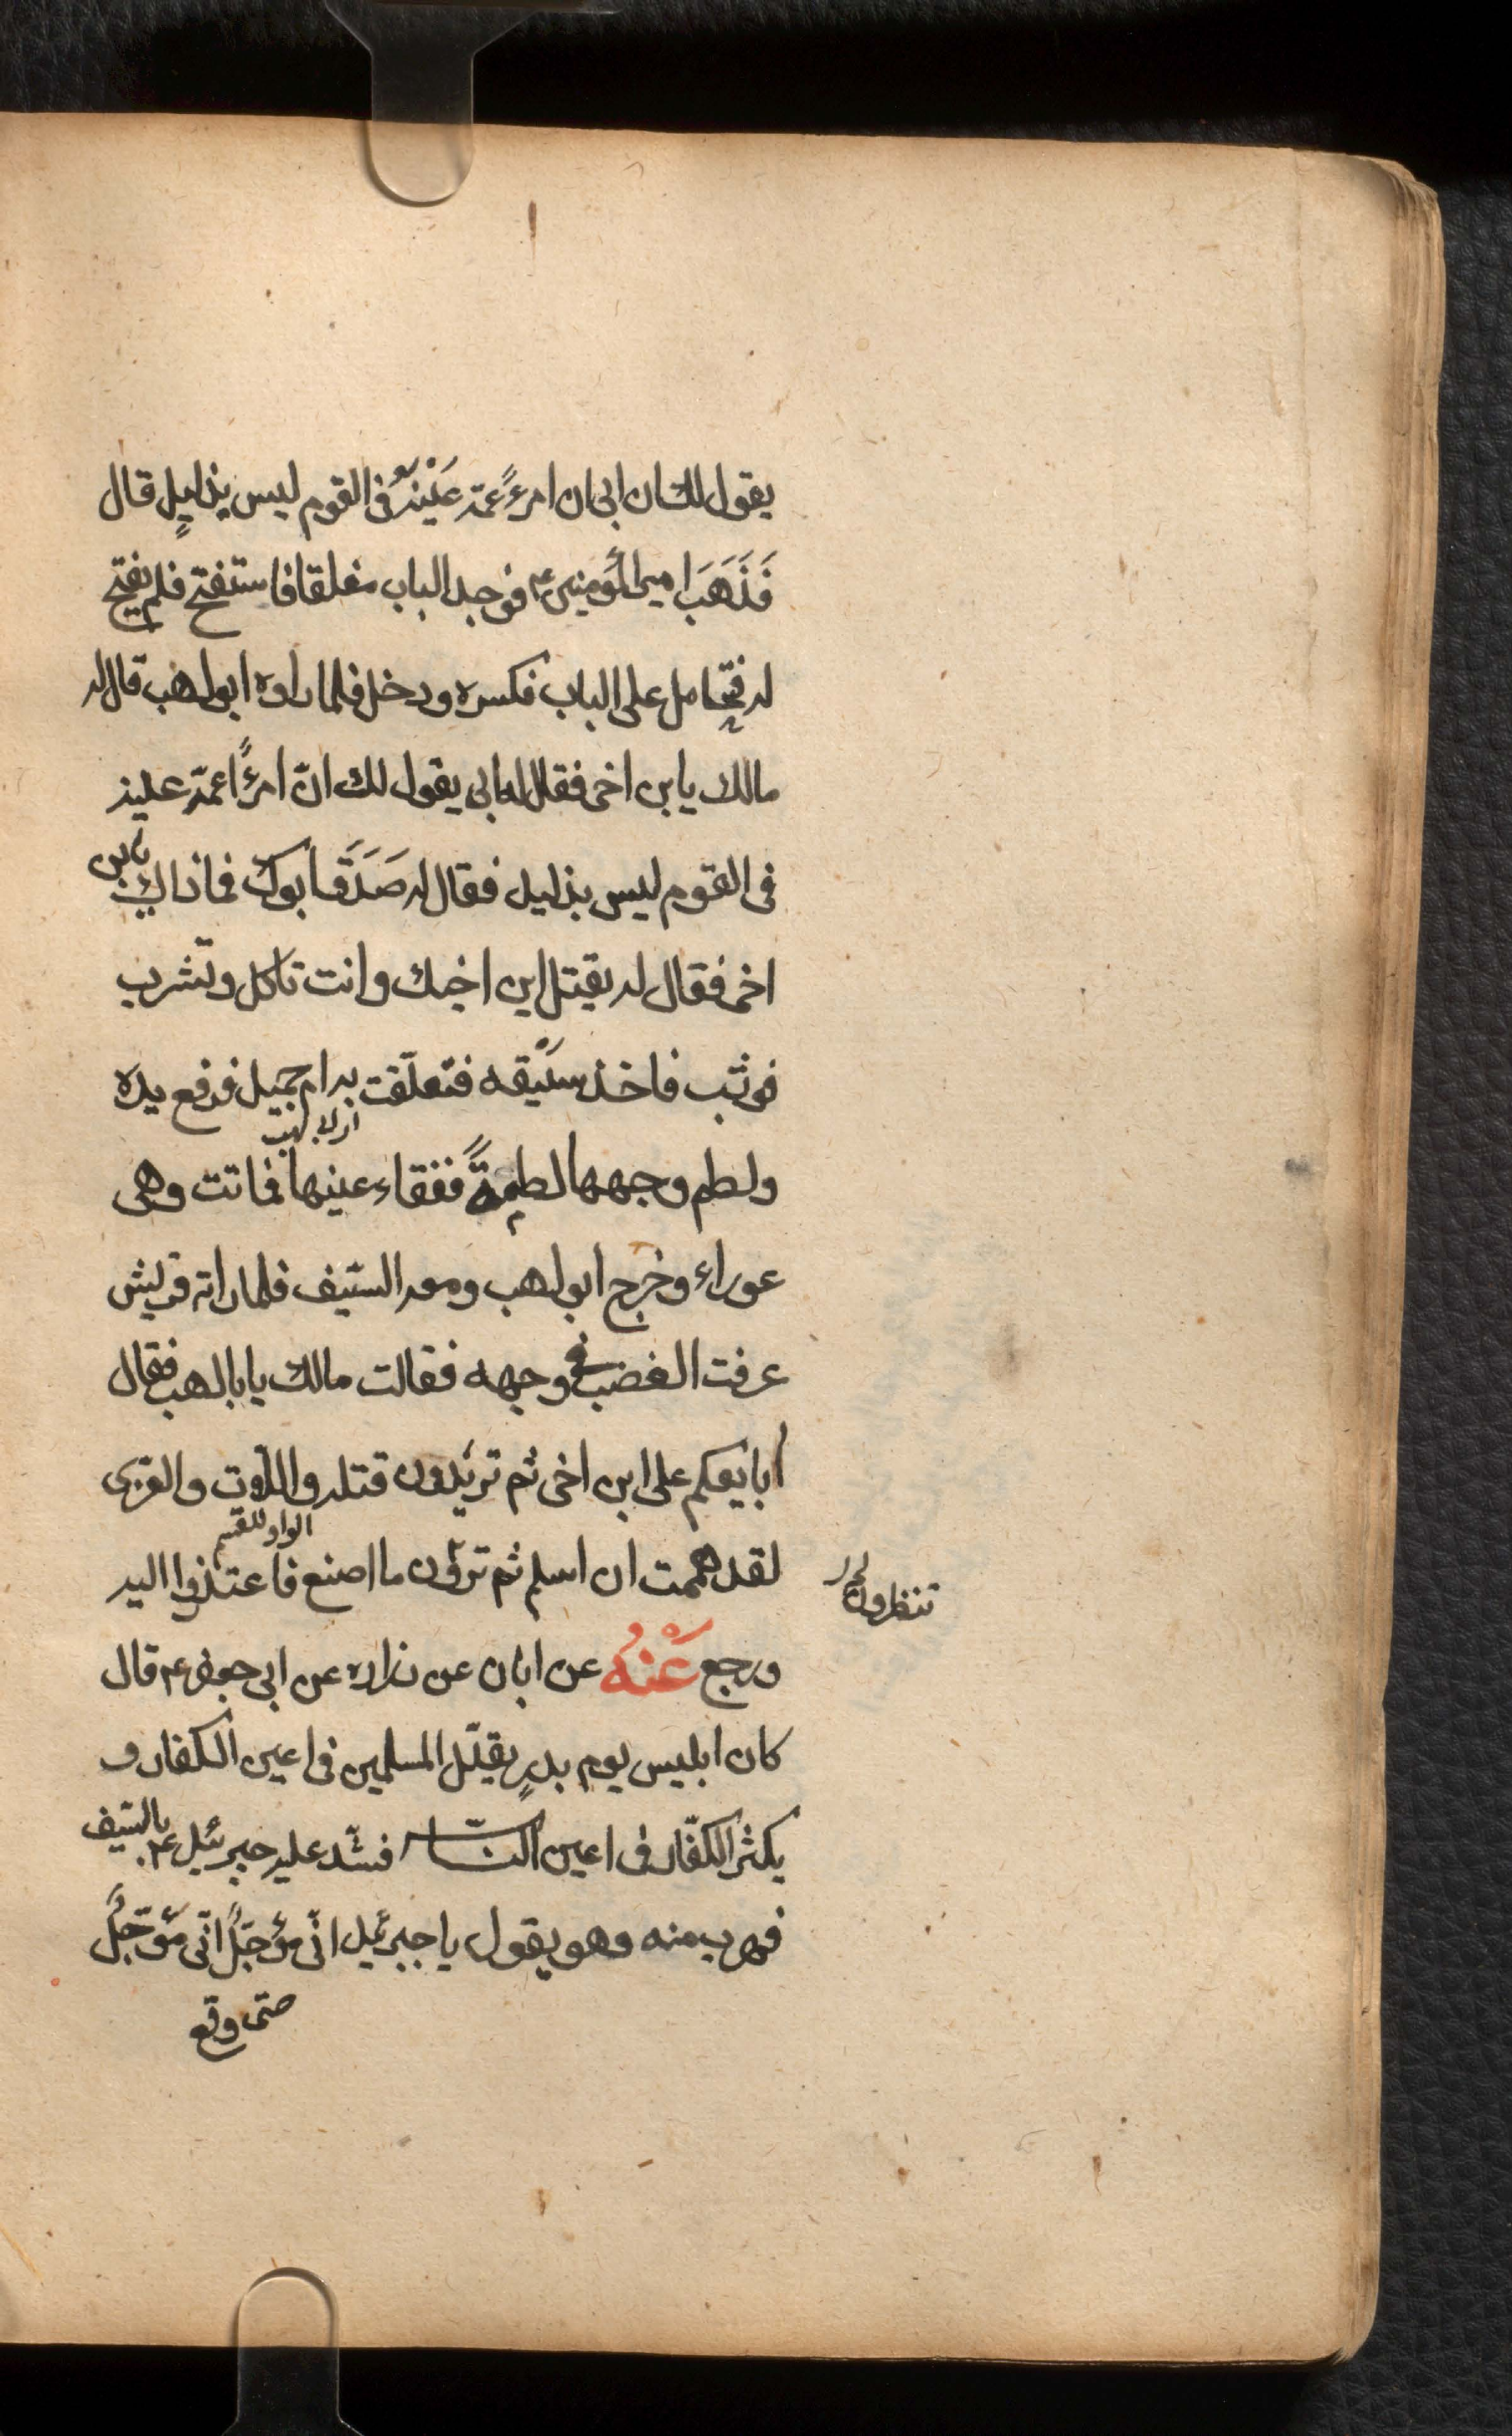 يقول لك ان ابى ان امرءً عمّه عَيْنه فى القوم ليس بذليلٍ قال
فَذَهَبَ امير المؤمنين ع فوجد الباب مغلقا فاستفتح فلم يفتح
له فتحامل على الباب فكسره ودخل فلما راوه ابو لهب قال له
مالك يابن اخى فقال له ابى يقول لك انّ امرءًا عمّه عليه
فى القوم ليس بذليل فقال له صَدَقَ ابوك فما ذاك يابن
اخى فقال له يقتل ابن اخيك وانت تاكل وتشرب
فوثب فاخذ سَيْفه فتعلّقت به ام جميل فرفع يده
اى لابى لهب
ولطم وجهها لطمةً ففقاء عينها فماتت وهى
عوراء وخرج ابو لهب ومعه السّيف فلما راته قريش
عرفت الغضب فى وجهه فقالت مالك يابا لهب فقال
ابايعكم على ابن اخى ثم تريدون قتله واللات والعزى
الواو للقسم
لقد هممت ان اسلم ثم ترون ما اصنع فاعتذروا اليه
تنظرون
ورجع عَنْهُ عن ابان عن زراره عن ابى جعفر ع قال
كان ابليس يوم بدرٍ يقلّل المسلمين فى اعين الكفار و
يكثر الكفّار فى اعين النّاس فشدّ عليه جبرئيل ع بالسّيف
فهرب منه وهو يقول يا جبرئيل انّى مؤجّلٌ انّى مؤجّلٌ
حتى وقع